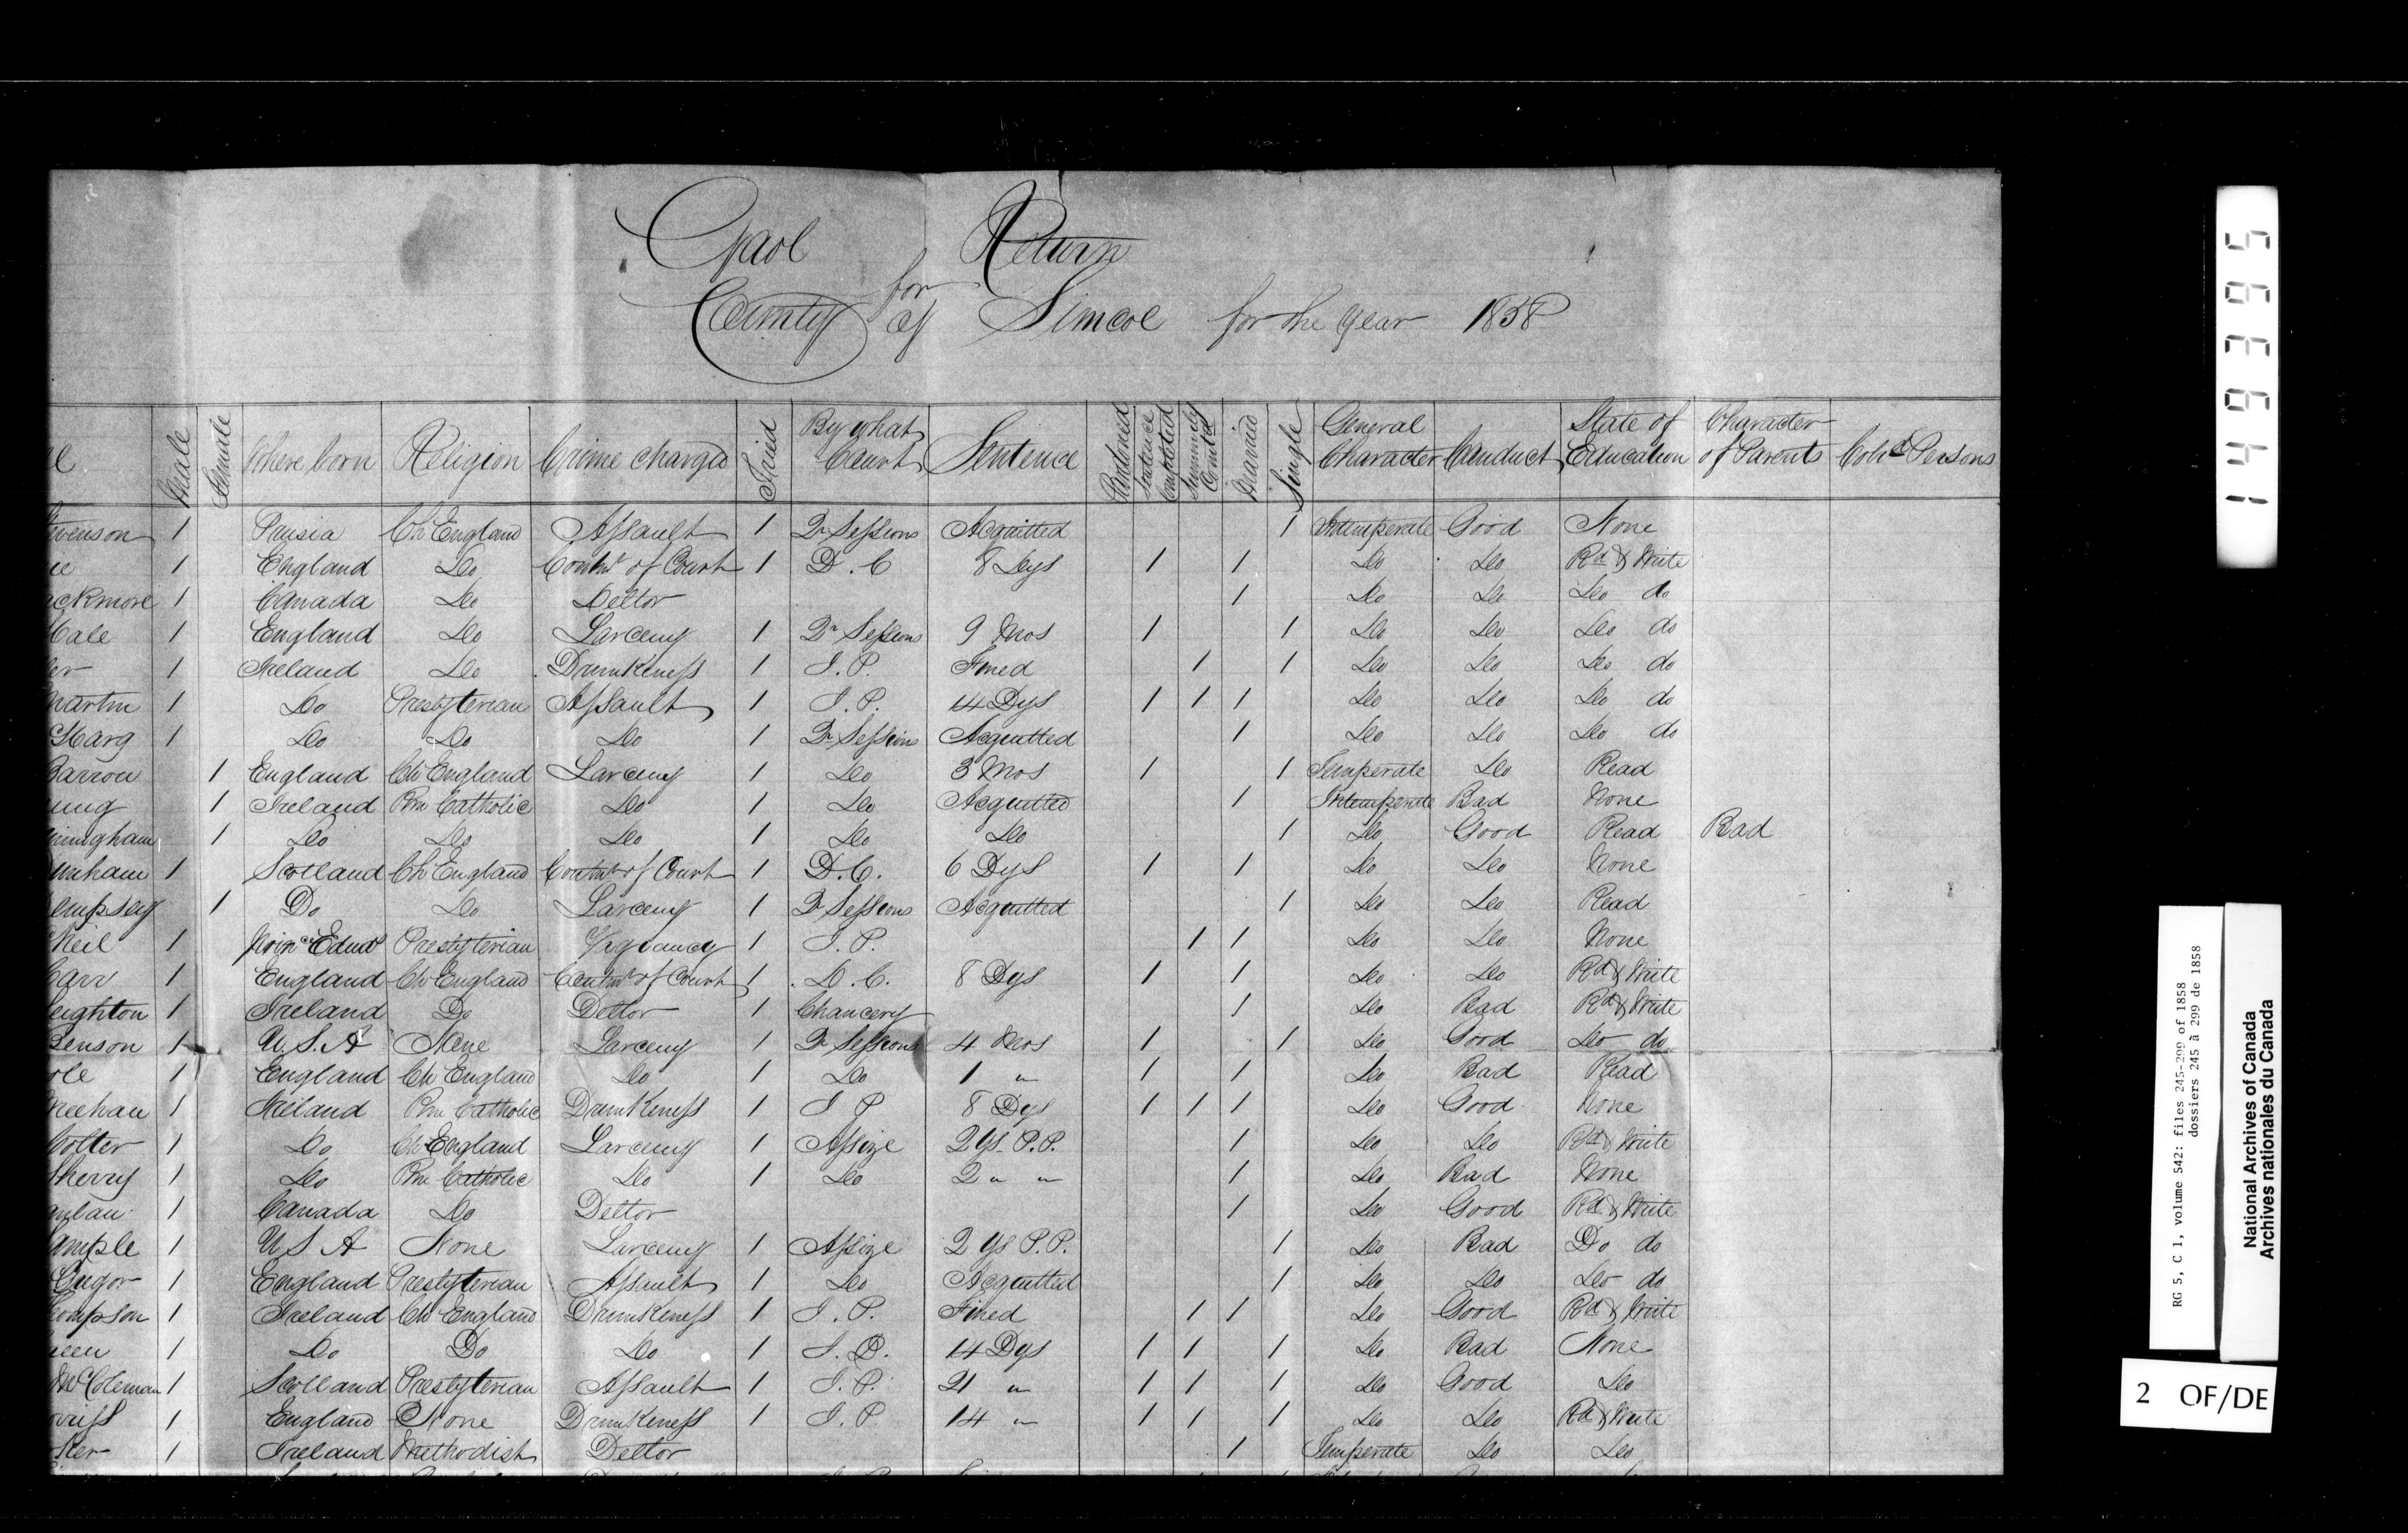 Gaol Return
for
County of Simcoe for the Year 1858
Male Female Where born Religion Crime charged Tried By what Court Sentence Pardoned Sentence Completed Summarily Comitted Married Single General Character Conduct State of Education Character of Parents Col'd Persons
venson 1 Prusia Ch England Assault 1 Qr Sessions Acquitted 1 Intemperate Good None
ie 1 England Do Contmt of Court 1 D. C 8 Dys 1 1 Do Do Rd & Write
ackmore 1 Canada Do Debtor 1 Do Do Do do
Cale 1 England Do Larceny 1 Qr Sessions 9 Mos 1 1 Do Do Do do
er 1 Ireland Do Drunkeness 1 J. P. Fined 1 1 Do Do Do do
Martin 1 Do Presbyterian Assault 1 J. P. 14 Dys 1 1 1 Do Do Do do
Harg 1 Do Do Do 1 Qr Sessions Acquitted 1 Do Do Do do
Barrow 1 England Ch England Larceny 1 Do 3 Mos 1 1 Temperate Do Read
ung 1 Ireland Rm Catholic Do 1 Do Acquitted 1 Intemperate Bad None
ningham 1 Do Do Do 1 Do Do 1 Do Good Read Bad
nham 1 Scotland Ch England Contmt of Court 1 D. C. 6 Dys 1 1 Do Do None
empsey 1 Do Do Larceny 1 Qr Sessions Acquitted 1 Do Do Read
Neil 1 Prince Edwd Presbyterian Vagrancy 1 J. P. 1 1 Do Do None
Carr 1 England Ch England Contmt of Court 1 D. C. 8 Dys 1 1 Do Do Rd & Write
eighton 1 Ireland Do Debtor 1 Chancery 1 Do Bad Rd & Write
Benson 1 U. S. A None Larceny 1 Qr Sessions 4 Mos 1 1 Do Good Do do
ole 1 England Ch England Do 1 Do 1 " 1 1 Do Bad Read
Meehan 1 Ireland Rm Catholic Drunkeness 1 J P 8 Dys 1 1 1 Do Good None
Colter 1 Do Ch England Larceny 1 Assize 2 Ys P. P. 1 Do Do Rd & Write
Sherry 1 Do Rm Catholic Do 1 Do 2 " " 1 Do Bad None
anlan 1 Canada Do Debtor 1 Do Good Rd & Write
ample 1 U S A None Larceny 1 Assize 2 Ys P. P. 1 Do Bad Do do
Gregor 1 England Presbyterian Assault 1 Do Acquitted 1 Do Do Do do
ompson 1 Ireland Ch England Drunkeness 1 J. P. Fined 1 1 Do Good Rd & Write
een 1 Do Do Do 1 J. P. 14 Dys 1 1 1 Do Bad None
McColeman 1 Scotland Presbyterian Assault 1 J. P. 21 " 1 1 1 Do Good Do
rriss 1 England None Drunkeness 1 J. P. 14 " 1 1 1 Do Do Rd & Write
ker 1 Ireland Methodist Debtor 1 Temperate Do Do
149395
RG 5, C 1, volume 542: files 245-299 of 1858
dossiers 245 à 299 de 1858
National Archives of Canada
Archives nationales du Canada
2 OF/DE